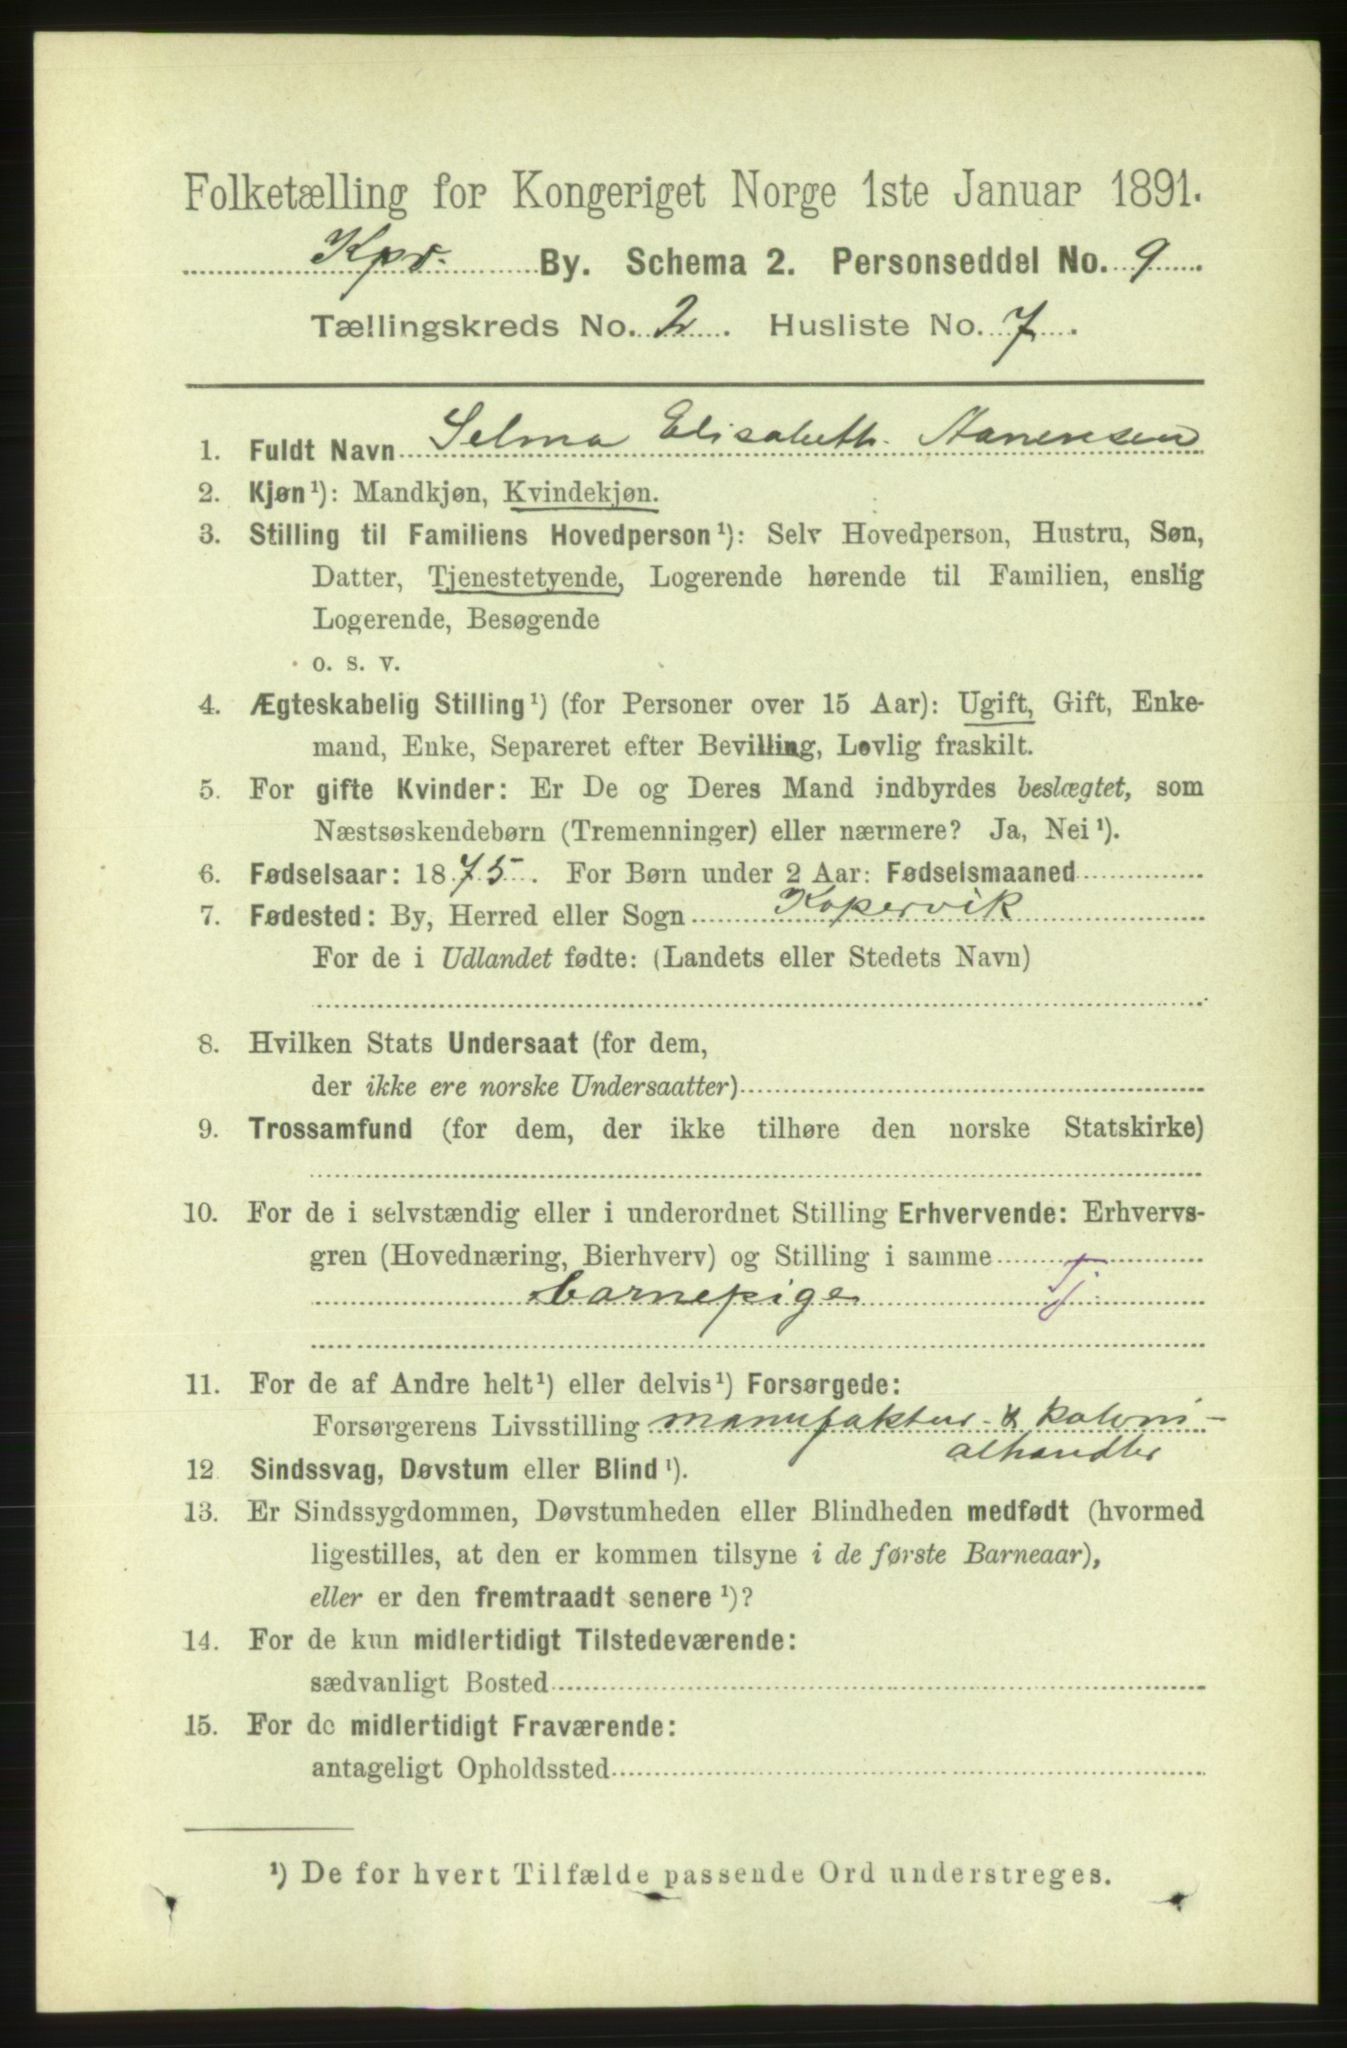 Folketælling for Kongeriget Norge 1ste Januar 1891.
Kpv. By. Schema 2. Personseddel No. 9.
Tællingskreds No. 2. Husliste No. 7.
1. Fuldt Navn Selma Elisabeth. Aanensen
2. Kjøn¹): Mandkjøn, Kvindekjøn.
3. Stilling til Familiens Hovedperson¹): Selv Hovedperson, Hustru, Søn,
Datter, Tjenestetyende, Logerende hørende til Familien, enslig
Logerende, Besøgende
o. s. v.
4. Ægteskabelig Stilling¹) (for Personer over 15 Aar): Ugift, Gift, Enke-
mand, Enke, Separeret efter Bevilling, Lovlig fraskilt.
5. For gifte Kvinder: Er De og Deres Mand indbyrdes beslægtet, som
Næstsøskendebørn (Tremenninger) eller nærmere? Ja, Nei¹).
6. Fødselsaar: 1875. For Børn under 2 Aar: Fødselsmaaned
7. Fødested: By, Herred eller Sogn Kopervik
For de i Udlandet fødte: (Landets eller Stedets Navn)
8. Hvilken Stats Undersaat (for dem,
der ikke ere norske Undersaatter)
9. Trossamfund (for dem, der ikke tilhøre den norske Statskirke)
10. For de i selvstændig eller i underordnet Stilling Erhvervende: Erhvervs-
gren (Hovednæring, Bierhverv) og Stilling i samme
barnepige Tj.
11. For de af Andre helt¹) eller delvis¹) Forsørgede:
Forsørgerens Livsstilling manufaktur- & koloni-
alhandler
12 Sindssvag, Døvstum eller Blind¹).
13. Er Sindssygdommen, Døvstumheden eller Blindheden medfødt (hvormed
ligestilles, at den er kommen tilsyne i de første Barneaar),
eller er den fremtraadt senere¹)?
14. For de kun midlertidigt Tilstedeværende:
sædvanligt Bosted
15. For de midlertidigt Fraværende:
antageligt Opholdssted
¹) De for hvert Tilfælde passende Ord understreges.